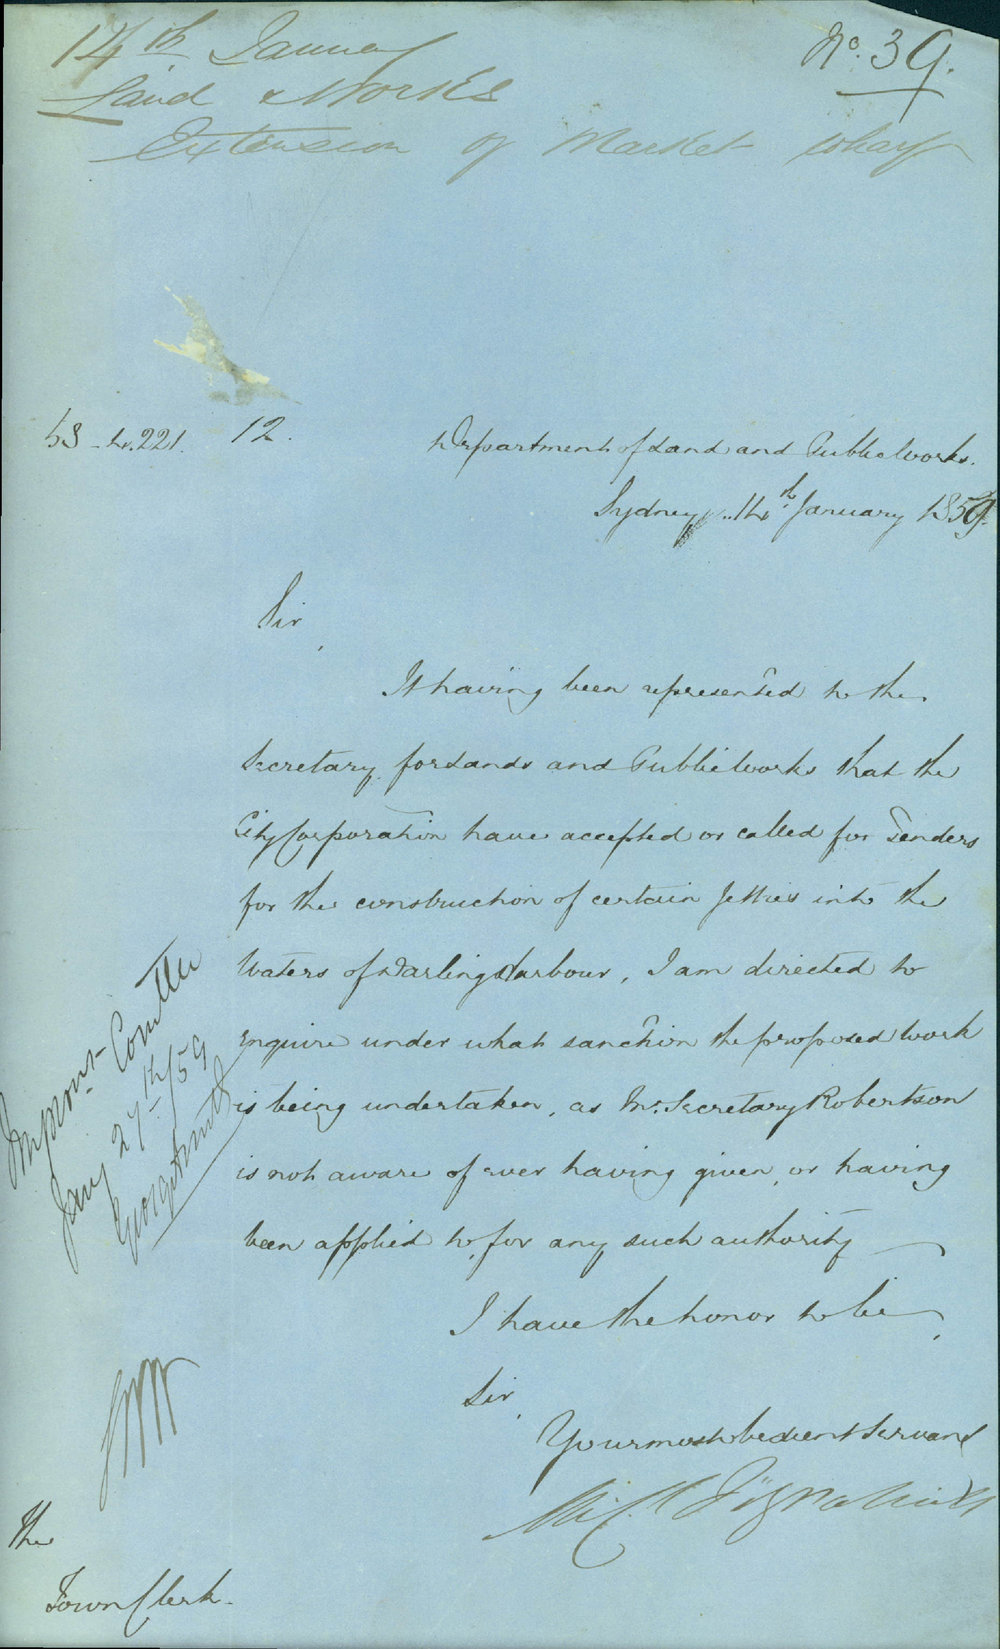 14th January
Land & Works
Extension of Market Wharf
No. 39.
12.
Department of Land and Public Works.
Sydney, 14th January 1859.
Sir,
It having been represented to the
Secretary for Lands and Public Works that the
City Corporation have accepted or called for Tenders
for the construction of certain Jetties into the
Waters of Darling Harbour, I am directed to
enquire under what sanction the proposed work
is being undertaken, as Mr. Secretary Robertson
is not aware of ever having given, or having
been applied to, for any such authority
I have the honor to be,
Sir,
Your most obedient Servant
Mich Fitzpatrick
Improvt. Comttee
Jany 27th/59
The
Town Clerk.